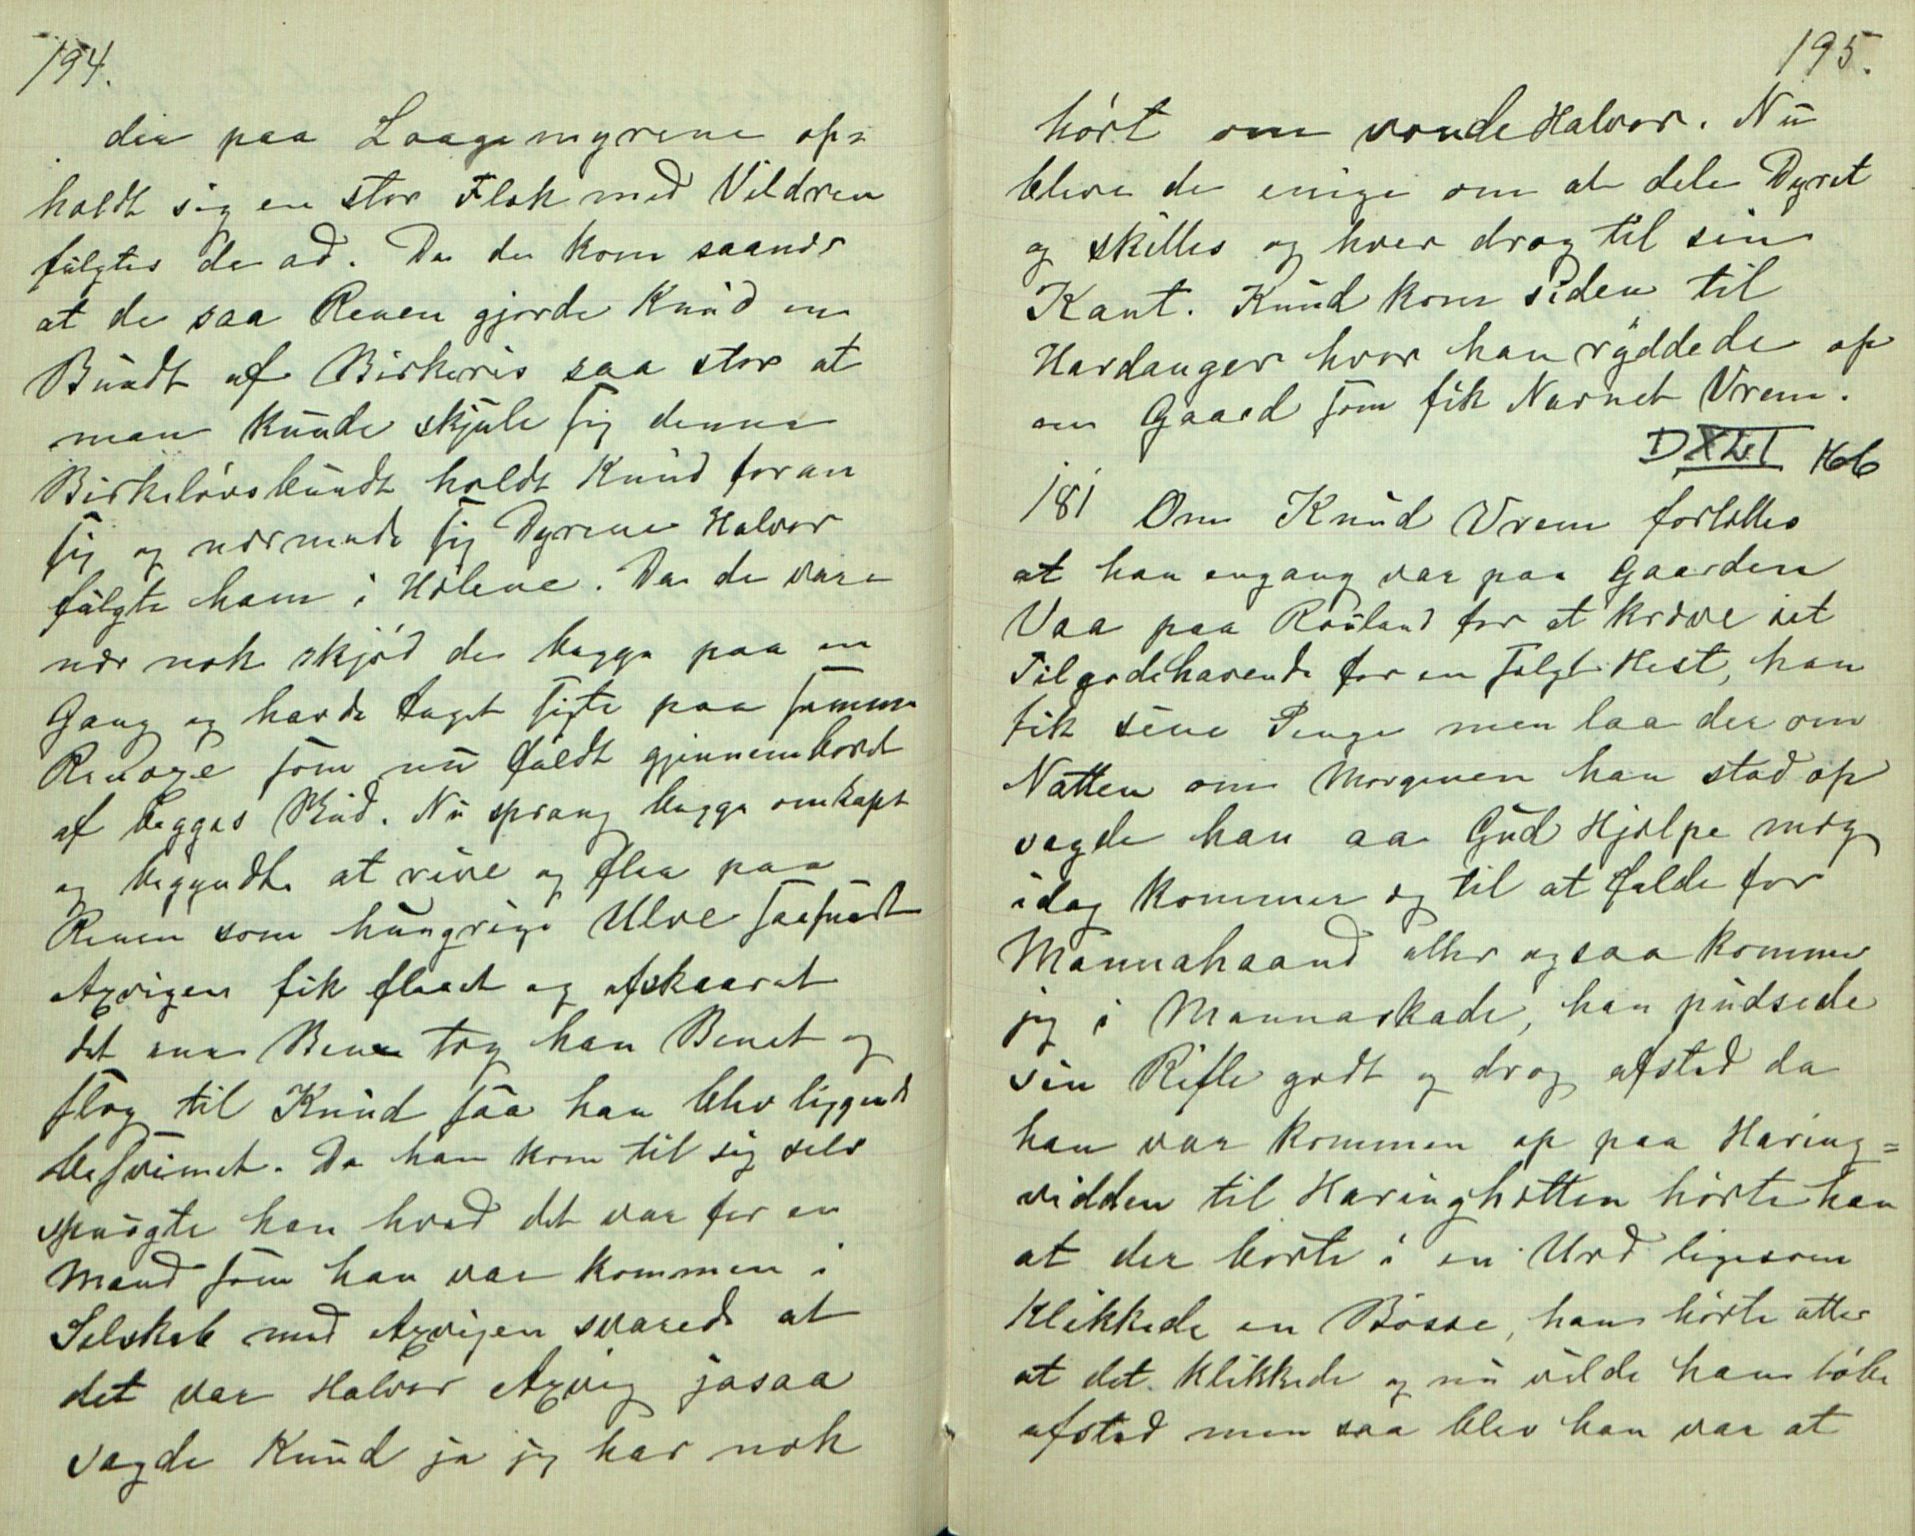 194.
der paa Laagemyrene op=
holdt sig en stor Flok med Vildren
fulgtes de ad. Da de kom saanær
at de saa Renen gjorde Knud en
Bundt af Birkeris saa stor at
man kunde skjule sig denne
Birkeløvsbundt holdt Knud foran
sig og nærmede sig Dyrene Halvor
fulgte ham i Hælene. Da de vare
nær nok skjød de begge paa en
Gang og havde taget sigte paa samme
Renoxe som nu faldt gjennemboret
af begges Skud. Nu sprang begge omkapt
og begyndte at rive og flaa paa
Renen som hungrige Ulve saasnart
Axvigen fik flaaet og afskaaret
det ene Benet tog han Benet og
slog til Knud saa han blev liggende
besvimet. Da han kom til sig selv
spurgte han hvad det var for en
Mand som han var kommen i
Selskab med Axvigen svarede at
det var Halvor Axvig jasaa
sagde Knud ja jeg har nok
195.
hørt om vonde Halvor. Nu
bleve de enige om at dele Dyret
og skilles og hver drog til sin
Kant. Knud kom siden til
Hardanger hvor han ryddede op
en Gaard som fik Navnet Vrem.
181 Om Knud Vrem fortælles
at han engang var paa Gaarden
Vaa paa Rauland for at kræve iet
Tilgodehavende for en solgt Hest, han
fik sine Penge men laa der om
Natten om Morgenen han stod op
sagde han aa Gud Hjælpe mig
idag kommer eg til at falde for
Mannahaand eller ogsaa kommer
jeg i Mannaskade, han pudsede
sin Rifle godt og drog afsted da
han var kommen op paa Haring=
vidden til Haringhætten hørte han
at der borte i en Urd ligesom
Klikkede en Bøsse, han hørte atter
at det klikkede og nu vilde han løbe
afsted men saa blev han var at